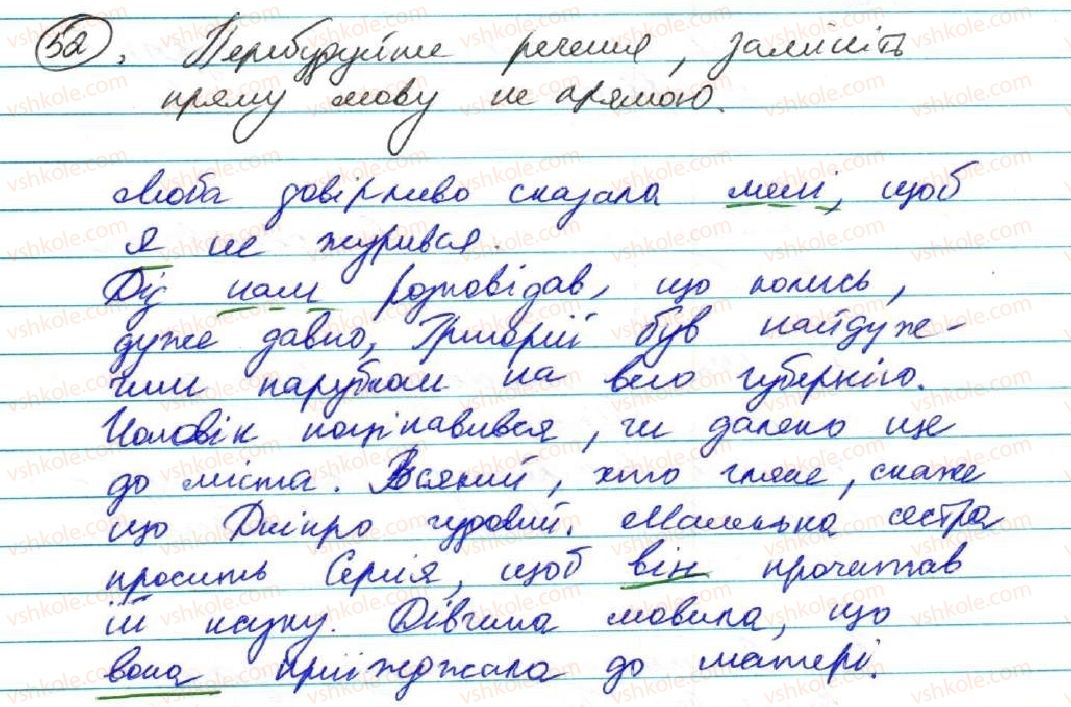 52. Перебудуйте речення, замініть
пряму мову непрямою.
Люба довірливо сказала мені, щоб
я не журився.
Дід нам розповідав, що колись,
дуже давно, Григорій був найдуж-
чим парубком на всю губернію.
Чоловік поцікавився, чи далеко ще
до міста. Всякий, хто гляне, скаже
що Дніпро чудовий. Маленька сестра
просить Сергія, щоб він прочитав
їй казку. Дівчина мовила, що
вона приїжджала до матері.